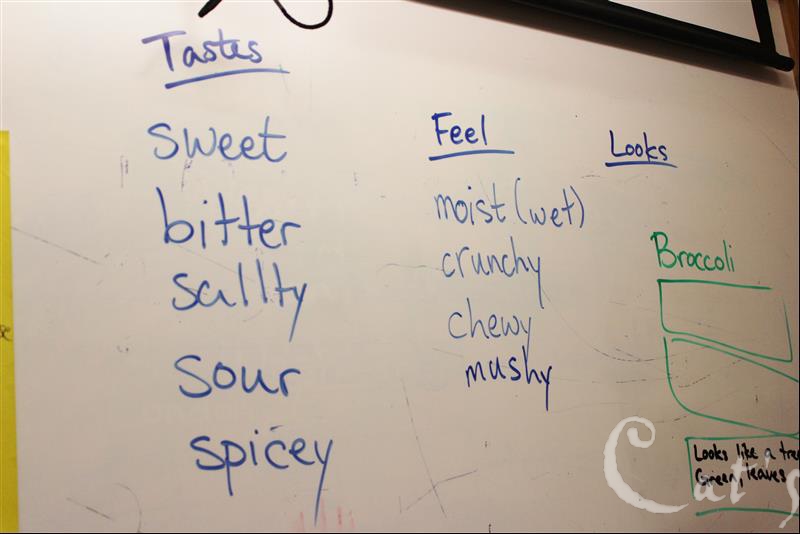 Tastes
sweet
bitter
sallty
sour
spicey
Feel
moist (wet)
crunchy
chewy
mushy
Looks
Broccoli
Looks like a tre
Green, leaves
Cat's